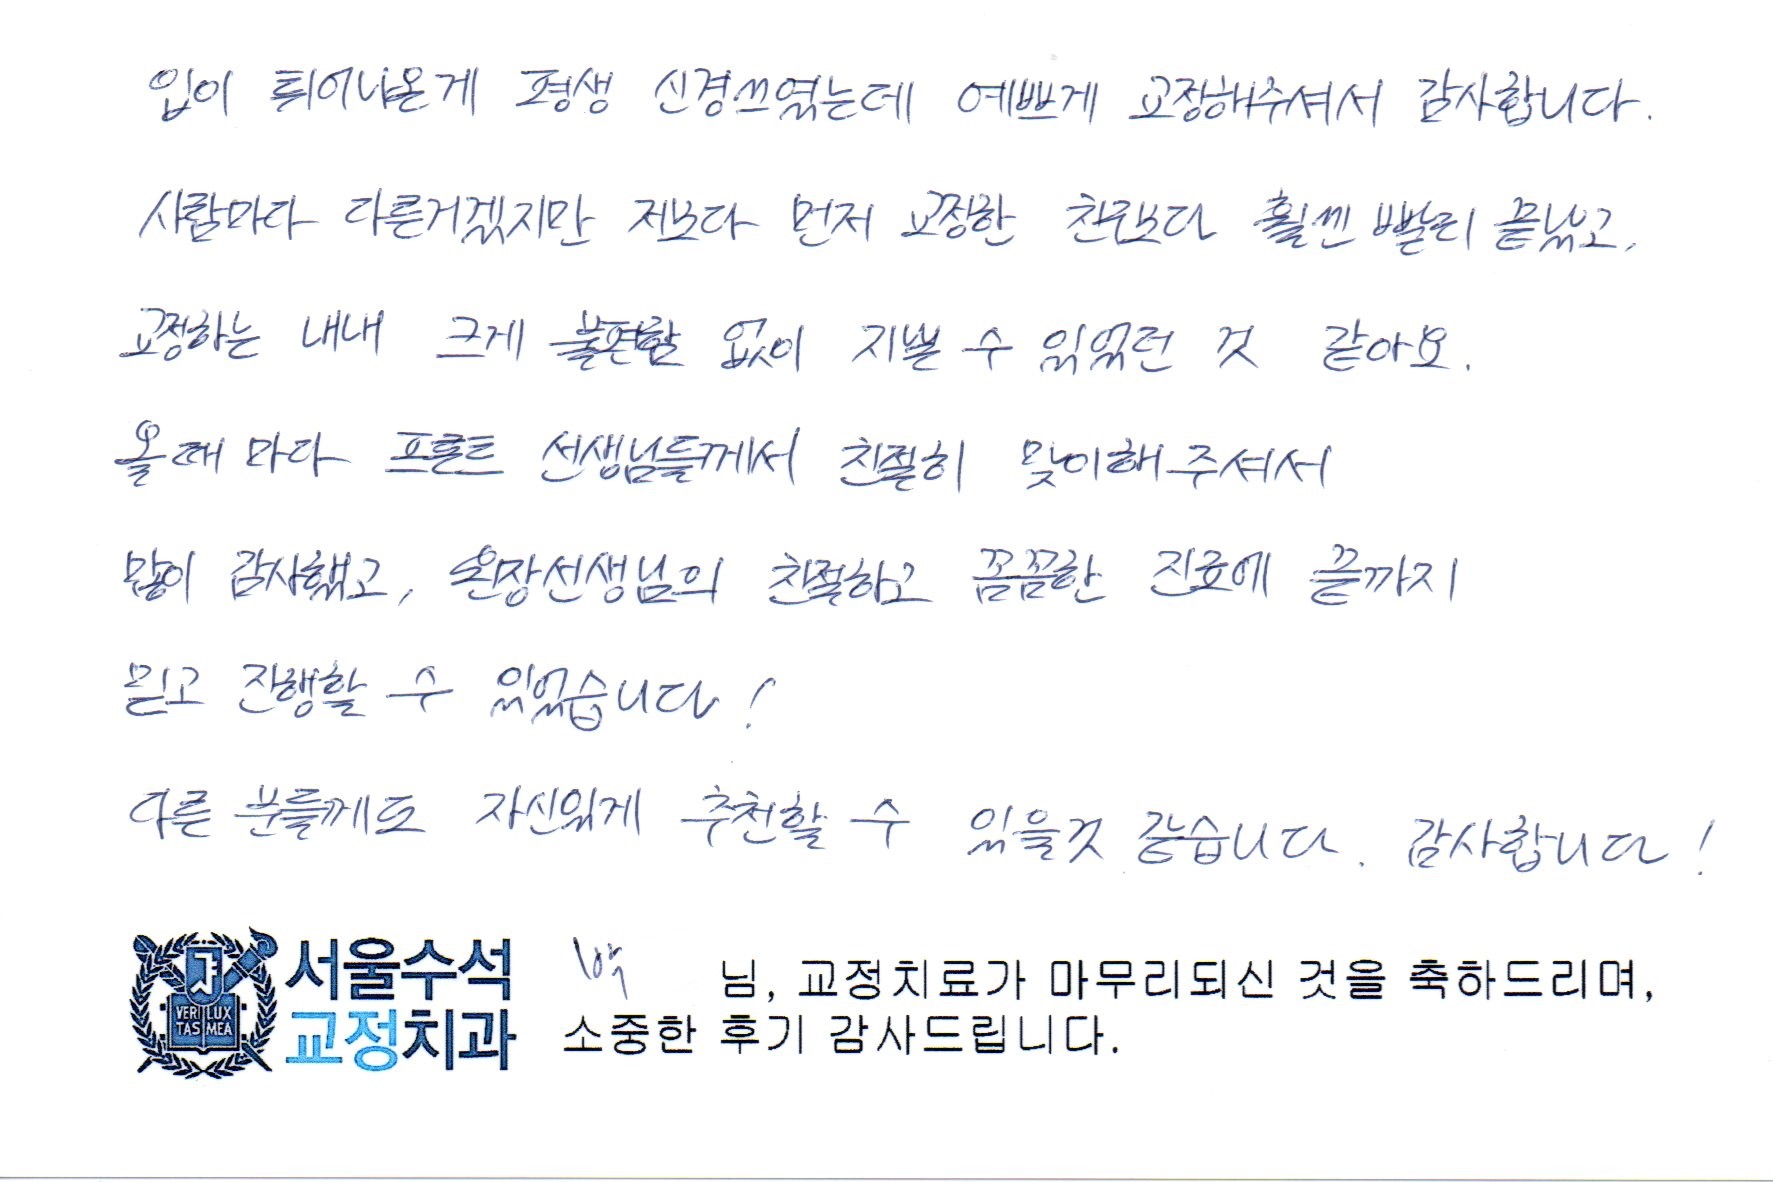 입이 튀어나온게 평생 신경쓰였는데 예쁘게 교정해주셔서 감사합니다.
사람마다 다른거겠지만 저보다 먼저 교정한 친구보다 훨씬 빨리 끝났고,
교정하는 내내 크게 불편함 없이 지낼 수 있었던 것 같아요.
올때 마다 프론트 선생님들께서 친절히 맞이해 주셔서
많이 감사했고, 원장선생님의 친절하고 꼼꼼한 진료에 끝까지
믿고 진행할 수 있었습니다!
다른 분들께도 자신있게 추천할 수 있을것 같습니다. 감사합니다!
VERI LUX
TAS MEA
서울수석
교정치과
박 님, 교정치료가 마무리되신 것을 축하드리며,
소중한 후기 감사드립니다.